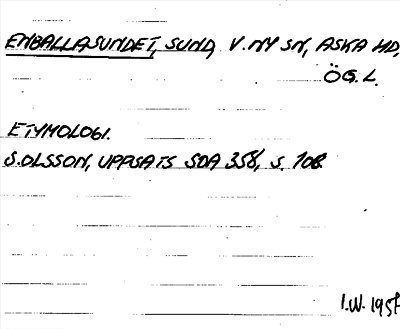 EMBALLASUNDET, SUND, V. NY SN, ASKA HD,
ÖG. L.
ETYMOLOGI.
S. OLSSON, UPPSATS SOA 358, S. 108
I.W. 195